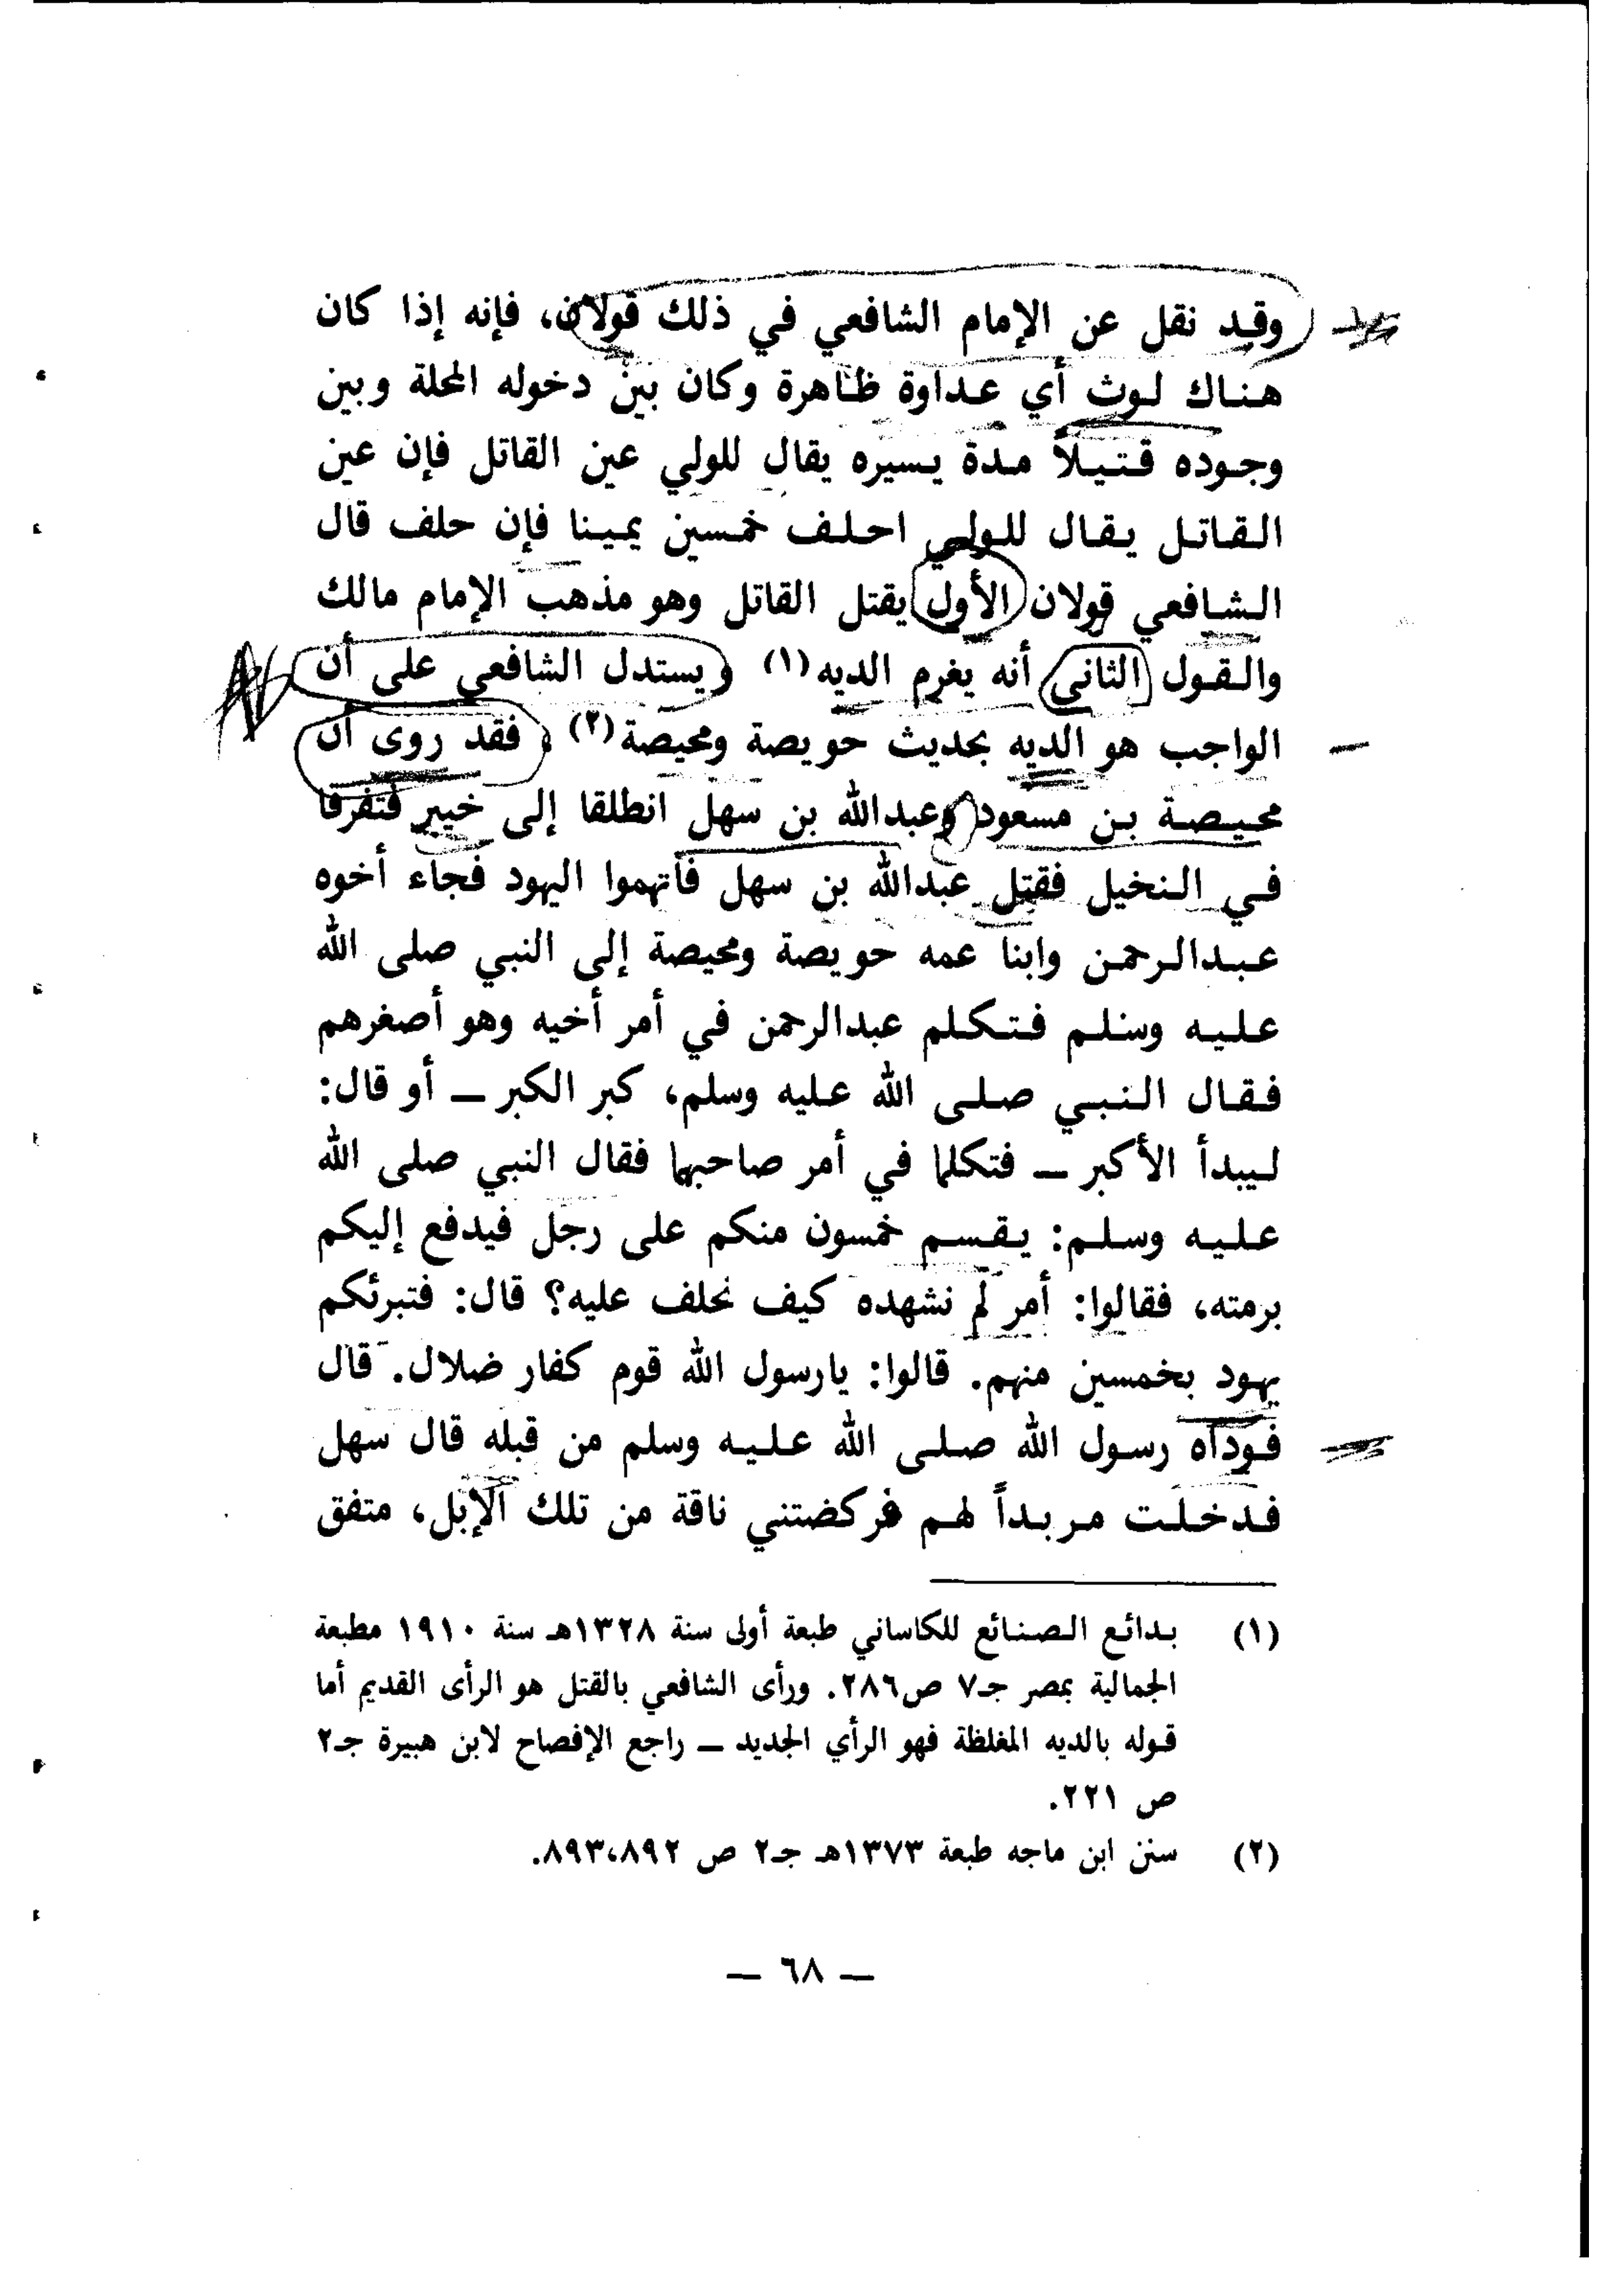 وقد نقل عن الإمام الشافعي في ذلك قولان، فإنه إذا كان
هناك لوث أي عداوة ظاهرة وكان بين دخوله المحلة وبين
وجوده قتيلاً مدة يسيره يقال للولي عين القاتل فإن عين
القاتل يقال للولي احلف خمسين يمينا فإن حلف قال
الشافعي قولان الأول يقتل القاتل وهو مذهب الإمام مالك
والقول الثاني أنه يغرم الديه (١) ويستدل الشافعي على أن
الواجب هو الديه بحديث حويصة ومحيصة (٢) ، فقد روى أن
محيصة بن مسعود وعبدالله بن سهل انطلقا إلى خيبر فتفرقا
في النخيل فقتل عبدالله بن سهل فاتهموا اليهود فجاء أخوه
عبدالرحمن وابنا عمه حويصة ومحيصة إلى النبي صلى الله
عليه وسلم فتكلم عبدالرحمن في أمر أخيه وهو أصغرهم
فقال النبي صلى الله عليه وسلم، كبر الكبر — أو قال:
ليبدأ الأكبر — فتكلما في أمر صاحبهما فقال النبي صلى الله
عليه وسلم: يقسم خمسون منكم على رجل فيدفع إليكم
برمته، فقالوا: أمر لم نشهده كيف نحلف عليه؟ قال: فتبرئكم
يهود بخمسين منهم. قالوا: يارسول الله قوم كفار ضلال. قال
فوداه رسول الله صلى الله عليه وسلم من قبله قال سهل
فدخلت مربداً لهم فركضتني ناقة من تلك الإبل، متفق
(١) بدائع الصنائع للكاساني طبعة أولى سنة ١٣٢٨هـ سنة ١٩١٠ مطبعة
الجمالية بمصر جـ٧ ص٢٨٦. ورأى الشافعي بالقتل هو الرأى القديم أما
قوله بالديه المغلظة فهو الرأي الجديد — راجع الإفصاح لابن هبيرة جـ٢
ص ٢٢١.
(٢) سنن ابن ماجه طبعة ١٣٧٣هـ جـ٢ ص ٨٩٣،٨٩٢.
— ٦٨ —